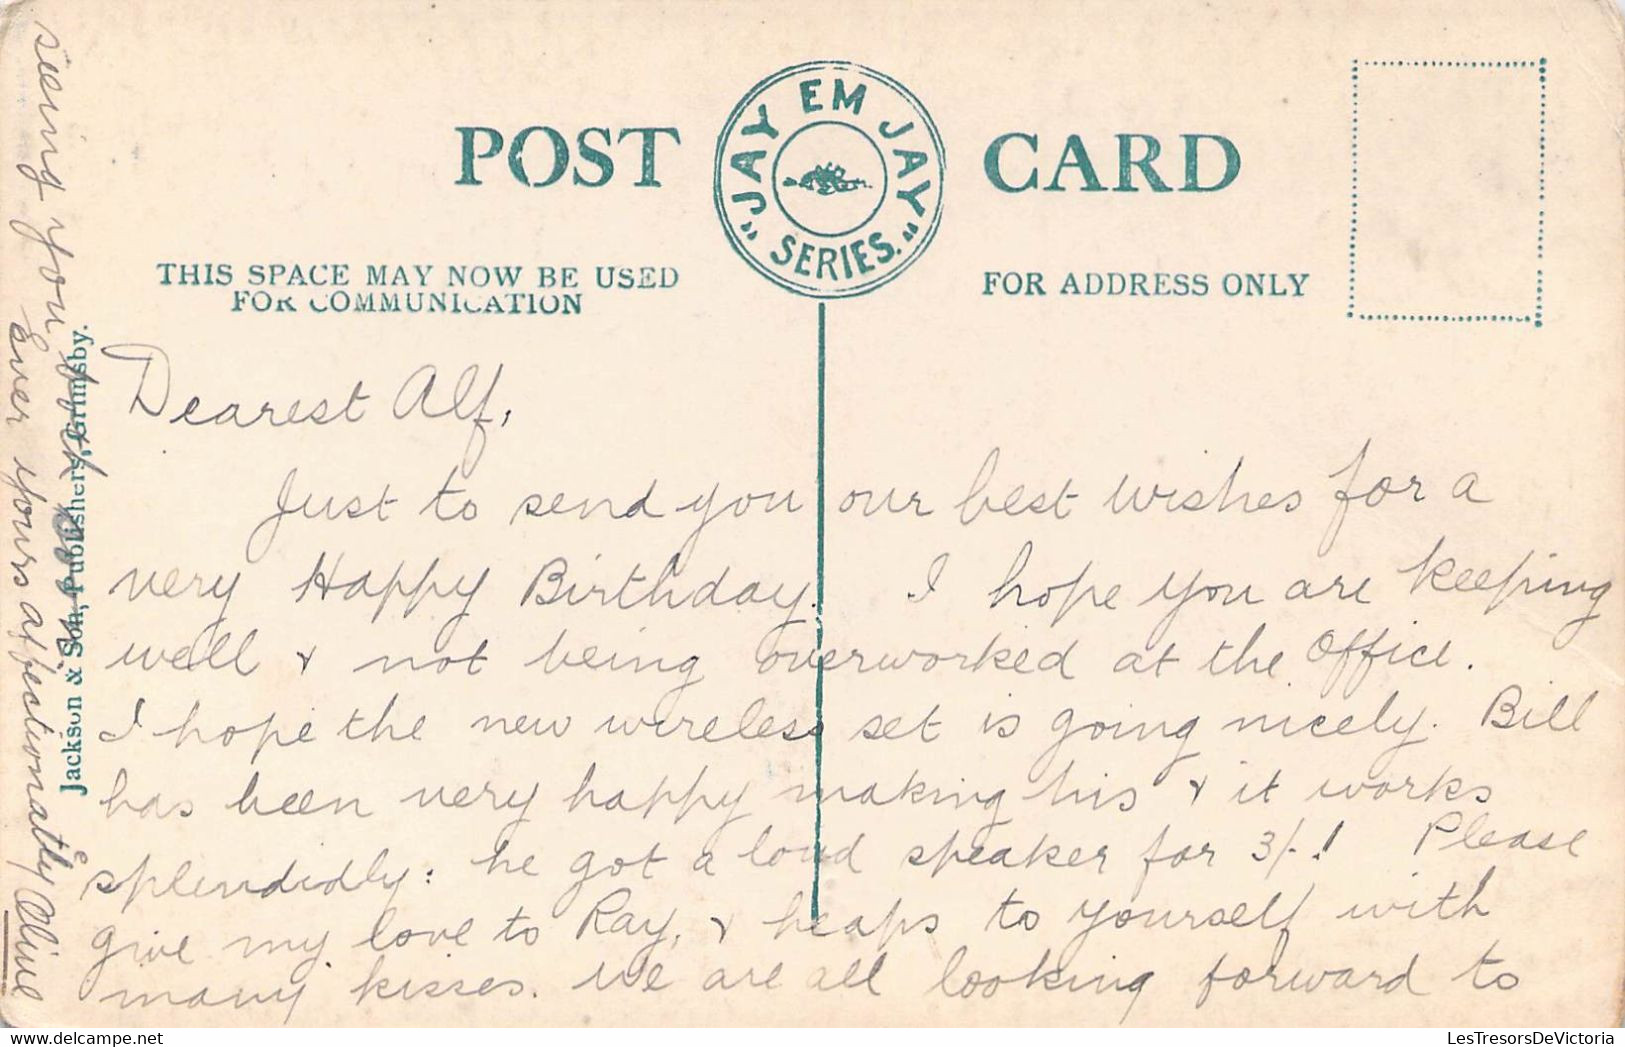 POST CARD
"JAY EM JAY" SERIES.
THIS SPACE MAY NOW BE USED
FOR COMMUNICATION
FOR ADDRESS ONLY
Dearest Alf,
Just to send you our best wishes for a
very Happy Birthday. I hope you are keeping
well & not being overworked at the Office.
I hope the new wireless set is going nicely. Bill
has been very happy making his & it works
splendidly: he got a loud speaker for 3/-! Please
give my love to Ray, & heaps to yourself with
many kisses. We are all looking forward to
seeing you back
Ever yours affectionately Olive
Jackson & Son, Publishers, Grimsby.
LesTresorsDeVictoria